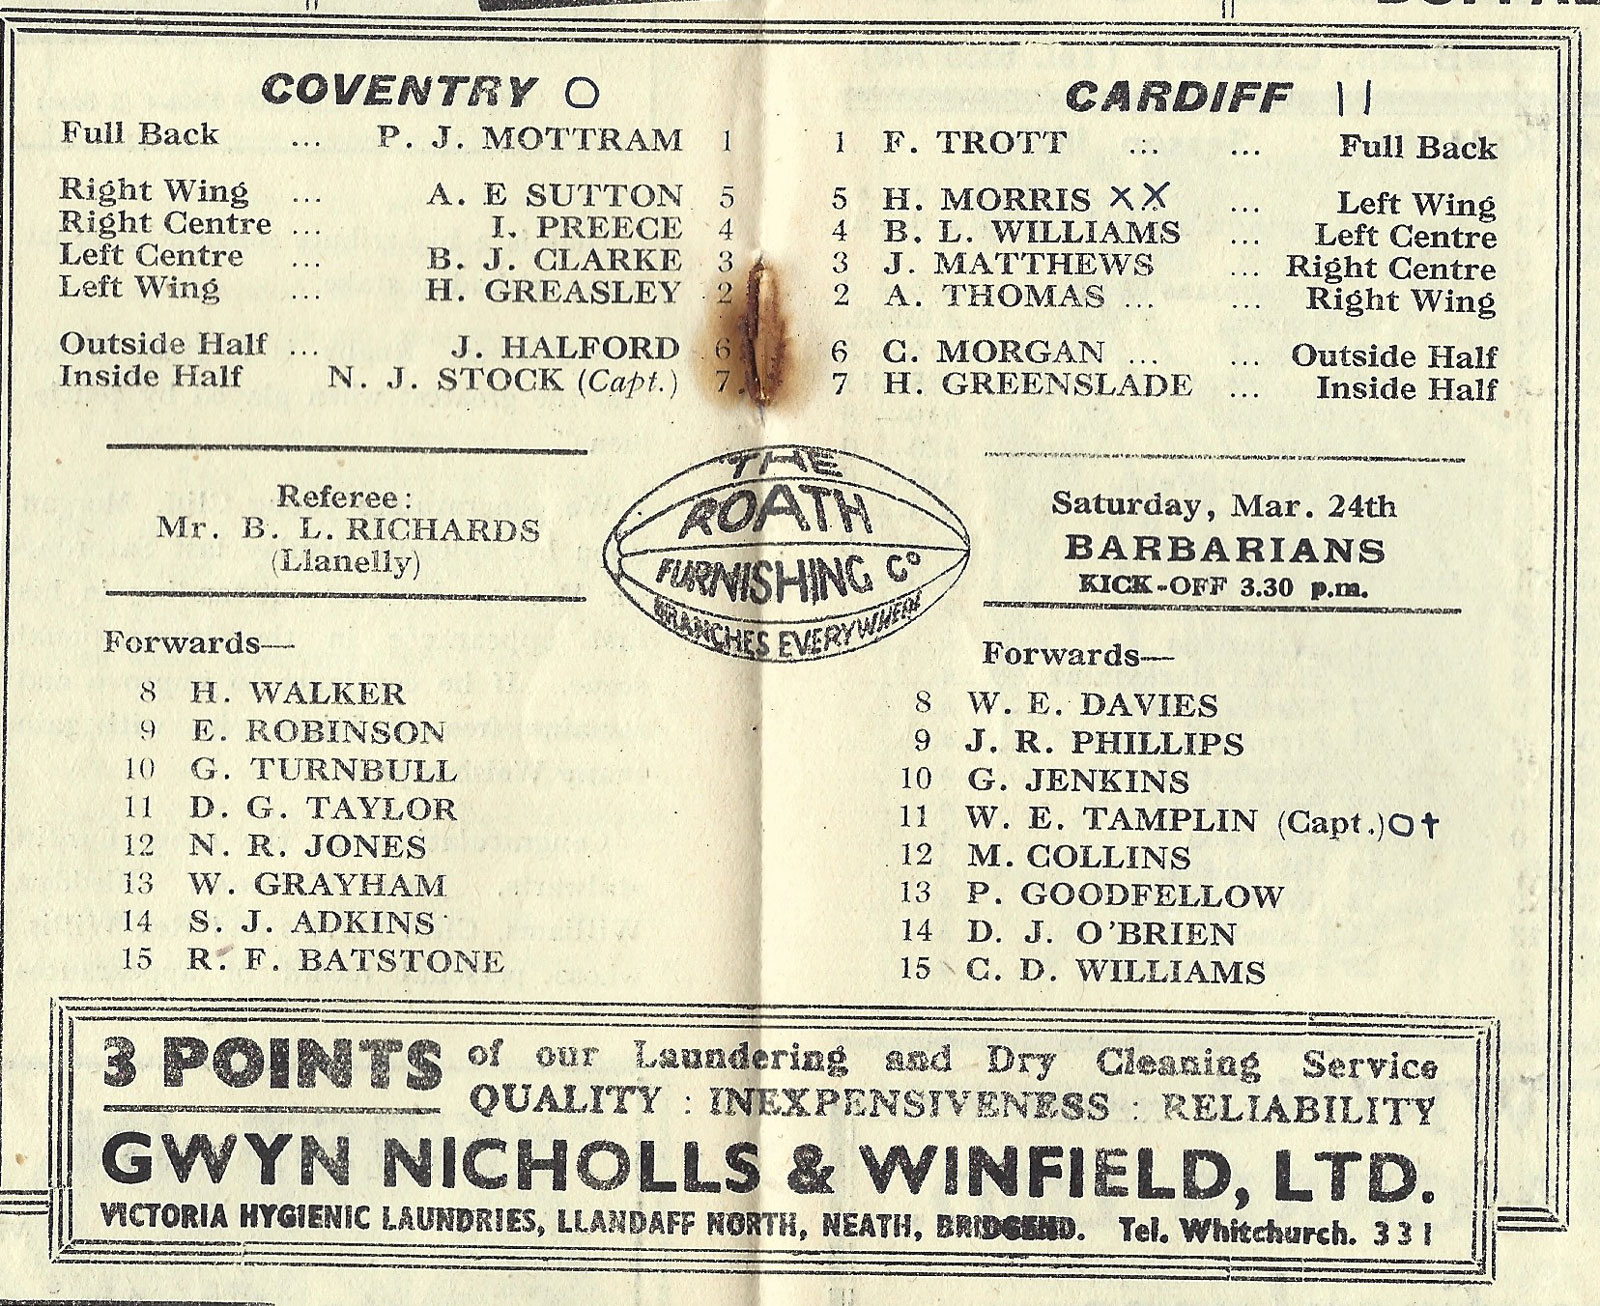 COVENTRY O
Full Back ... P. J. MOTTRAM 1
Right Wing ... A. E SUTTON 5
Right Centre ... I. PREECE 4
Left Centre ... B. J. CLARKE 3
Left Wing ... H. GREASLEY 2
Outside Half ... J. HALFORD 6
Inside Half N. J. STOCK (Capt.) 7.
CARDIFF 11
1 F. TROTT ... ... Full Back
5 H. MORRIS XX ... Left Wing
4 B. L. WILLIAMS ... Left Centre
3 J. MATTHEWS ... Right Centre
2 A. THOMAS ... ... Right Wing
6 C. MORGAN ... ... Outside Half
7 H. GREENSLADE ... Inside Half
Referee:
Mr. B. L. RICHARDS
(Llanelly)
THE
ROATH
FURNISHING Co
BRANCHES EVERYWHERE
Saturday, Mar. 24th
BARBARIANS
KICK-OFF 3.30 p.m.
Forwards—
8 H. WALKER
9 E. ROBINSON
10 G. TURNBULL
11 D. G. TAYLOR
12 N. R. JONES
13 W. GRAYHAM
14 S. J. ADKINS
15 R. F. BATSTONE
Forwards—
8 W. E. DAVIES
9 J. R. PHILLIPS
10 G. JENKINS
11 W. E. TAMPLIN (Capt.) O†
12 M. COLLINS
13 P. GOODFELLOW
14 D. J. O'BRIEN
15 C. D. WILLIAMS
3 POINTS of our Laundering and Dry Cleaning Service
QUALITY : INEXPENSIVENESS : RELIABILITY
GWYN NICHOLLS & WINFIELD, LTD.
VICTORIA HYGIENIC LAUNDRIES, LLANDAFF NORTH, NEATH, BRIDGEND. Tel. Whitchurch. 331